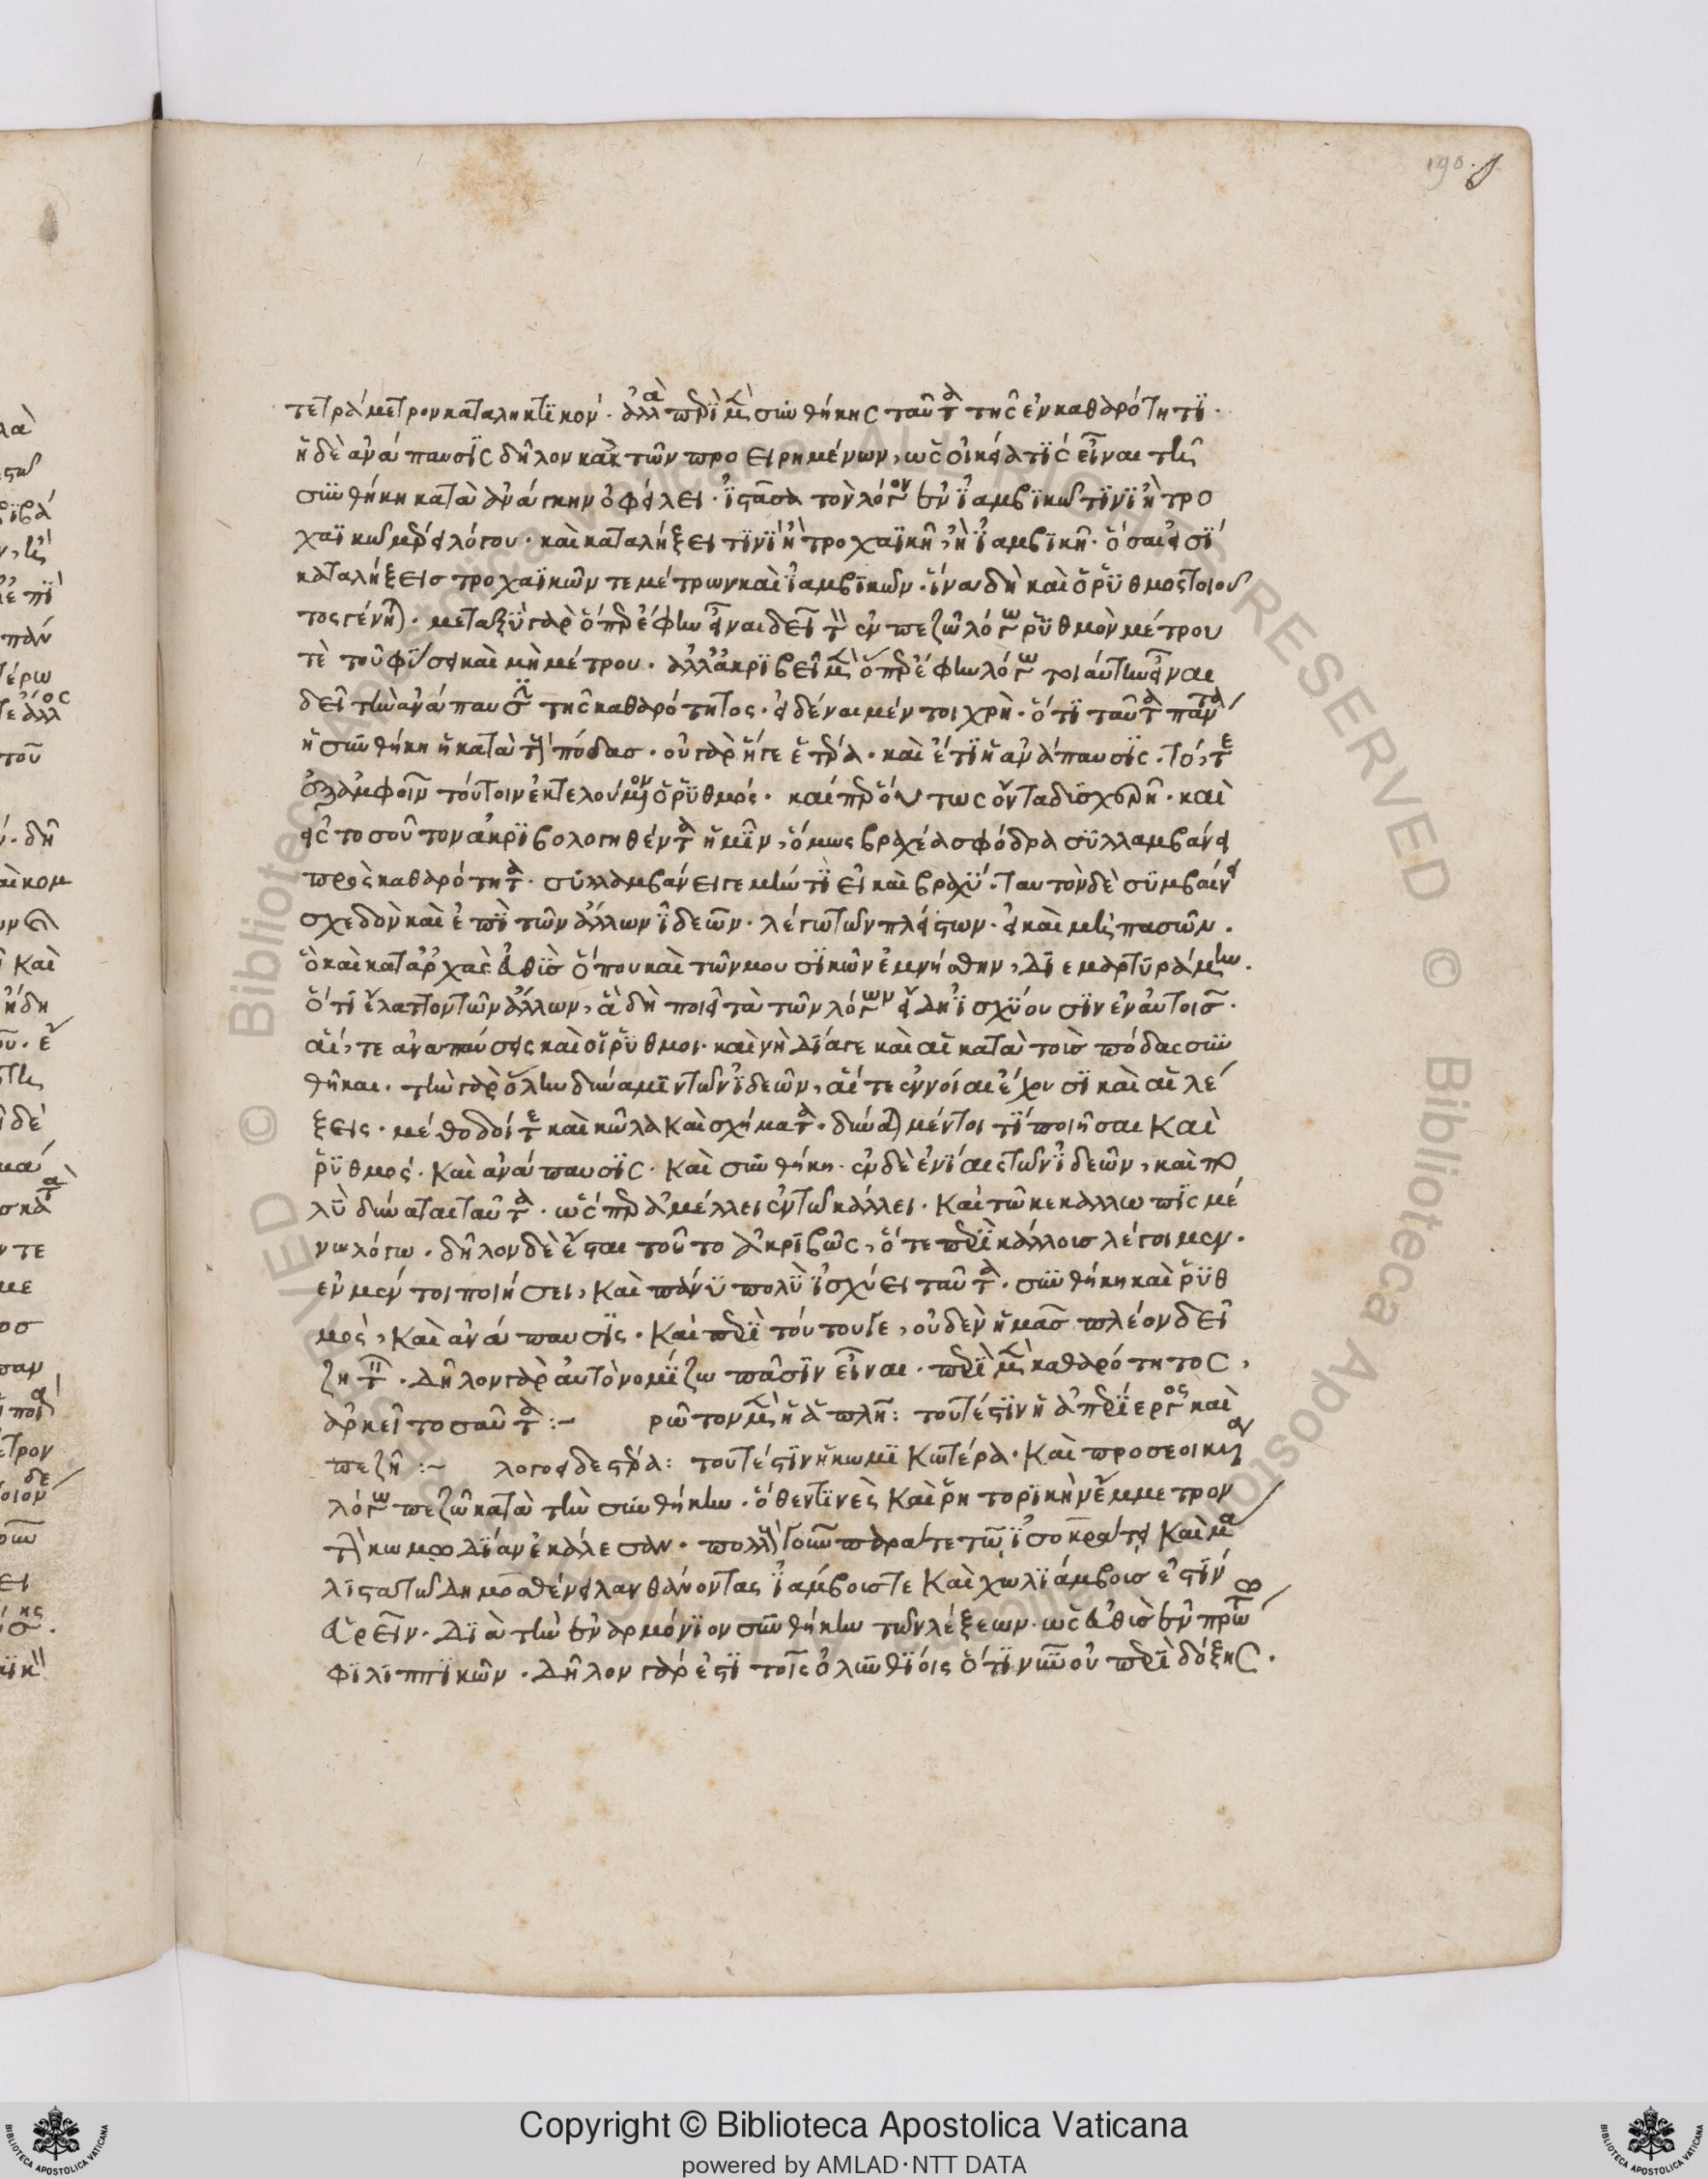 190
τετράμετρον καταληκτικόν. ἀλλὰ περὶ μὲν συνθήκης ταῦτα τῆς ἐν καθαρότητι.
ἡ δὲ ἀνάπαυσις δῆλον κἀκ τῶν προειρημένων, ὡς οἰκεία τίς εἶναι τῇ
συνθήκῃ κατὰ ἀνάγκην ὀφείλει. ἱστᾶσα τὸν λόγον ἐν ἰαμβικῶ τινὶ ἢ τρο
χαϊκῶ μέρει λόγου. καὶ καταλήξει τινὶ ἢ τροχαϊκῆ, ἢ ἰαμβικῆ. ὅσαι εἰσὶ
καταλήξεις τροχαϊκῶν τε μέτρων καὶ ἰαμβικῶν. ἵνα δὴ καὶ ὁ ῥυθμὸς τοιοῦ
τος γένηται. μεταξὺ γὰρ ὅπερ ἔφην εἶναι δεῖ τὸν ἐν πεζῶ λόγω ῥυθμὸν μέτρου
τὲ τοῦ φύσει καὶ μὴ μέτρου. ἀλλ' ἀκριβεῖ μὲν ὅπερ ἔφην λόγω τοιαύτην εἶναι
δεῖ τὴν ἀνάπαυσιν τῆς καθαρότητος. εἰδέναι μέντοι χρὴ. ὅτι ταῦτα πάντα
ἡ συνθήκη ἡ κατὰ τοὺς πόδας. οὐ γὰρ ἥγε ἑτέρα. καὶ ἔτι ἡ ἀνάπαυσις. τό, τε
ἐξ ἀμφοῖν τούτοιν ἐκτελούμενον ὁ ῥυθμός. καίπερ οὕτως ὄντα δισχερῆ. καὶ
εἰς τοσοῦτον ἀκριβολογηθέντα ἡμῖν, ὅμως βραχέα σφόδρα συλλαμβάνει
πρὸς καθαρότητα. συλλαμβάνει γε μὴν τὶ εἰ καὶ βραχύ. ταυτὸν δὲ συμβαίνει
σχεδὸν καὶ ἐπὶ τῶν ἄλλων ἰδεῶν. λέγω τῶν πλείστων. εἰ καὶ μὴ πασῶν.
ὃ καὶ καταρχὰς εὐθὺς ὅπου καὶ τῶν μουσικῶν ἐμνήσθην, διεμαρτυράμην.
ὅτι ἔλαττον τῶν ἄλλων, ἃ δὴ ποιεῖ τὰ τῶν λόγων εἴδη ἰσχύουσιν ἐν αὐτοῖς.
αἵ, τε ἀναπαύσεις καὶ οἱ ῥυθμοι. καὶ νὴ δία γε καὶ αἱ κατὰ τοὺς πόδας συν
θῆκαι. τὴν γὰρ ὅλην δύναμιν τῶν ἰδεῶν, αἵ τε ἐννοίαι ἔχουσι καὶ αἱ λέ
ξεις. μέθοδοί τε καὶ κῶλα καὶ σχήματα. δύναται μέντοι τί ποιῆσαι καὶ
ῥυθμός. καὶ ἀνάπαυσις. καὶ συνθήκη. ἐν δὲ ἐνίαις τῶν ἰδεῶν, καὶ πο
λὺ δύναται ταῦτα. ὥσπερ ἀμέλλει ἐν τῶ κάλλει. καὶ τῶ κεκαλλωπισμέ
νω λόγω. δῆλον δὲ ἔσται τοῦτο ἀκριβῶς, ὅτε περὶ κάλλους λέγοιμεν.
ἐν μέντοι ποιήσει, καὶ πάνυ πολὺ ἰσχύει ταῦτα. συνθήκη καὶ ῥυθ
μός, καὶ ἀνάπαυσις. καὶ περὶ τούτου γε, οὐδὲν ἡμᾶς πλέον δεῖ
ζητεῖν. δῆλον γὰρ αὐτὸ νομίζω πᾶσιν εἶναι. περὶ μὲν καθαρότητος,
ἀρκεῖ τοσαῦτα :~ ρῶτον μὲν ἡ ἁπλῆ: τουτέστιν ἡ ἀπερίεργος καὶ
πεζῆ :~ λογοειδεστέρα: τουτέστιν ἡ κωμικωτέρα. καὶ προσεοικυῖα
λόγω πεζῶ κατὰ τὴν συνθήκην. ὅθεν τινὲς καὶ ῥητορικὴν ἔμμετρον
τὴν κωμωδίαν ἐκάλεσαν. πολλοὺς γοῦν παρά τε τῶ ἰσοκράτει καὶ μά
λιστα τῶ δημοσθένει λανθάνοντας ἰάμβους τε καὶ χωλιάμβους ἐστὶν
εὑρεῖν. διὰ τὴν ἐναρμόνιον συνθήκην τῶν λέξεων. ὡς εὐθὺς ἐν πρώτω
φιλιππικῶν. δῆλον γάρ ἐστι τοῖς ὀλυνθίοις ὅτι νῦν οὐ περὶ δόξης.
© Biblioteca Apostolica Vaticana ALL RIGHTS RESERVED
Copyright © Biblioteca Apostolica Vaticana
powered by AMLAD·NTT DATA
BIBLIOTECA APOSTOLICA VATICANA
BIBLIOTECA APOSTOLICA VATICANA